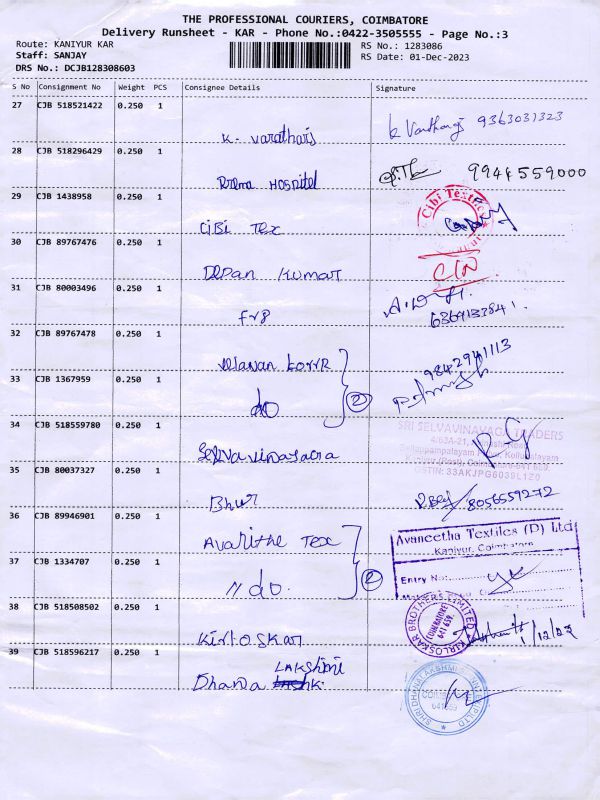 THE PROFESSIONAL COURIERS, COIMBATORE
Delivery Runsheet - KAR - Phone No.:0422-3505555 - Page No.:3
Route: KANIYUR KAR
Staff: SANJAY
DRS No.: DCJB128308603
RS No.: 1283086
RS Date: 01-Dec-2023
S No Consignment No Weight PCS Consignee Details Signature
27 CJB 518521422 0.250 1
K. Varatharis 9363031323
28 CJB 518296429 0.250 1
Prema Hospital 9944559000
29 CJB 1438958 0.250 1
Cibi Tex Cibi Textiles
30 CJB 89767476 0.250 1
Depan Kumar
31 CJB 80003496 0.250 1
6369133841
32 CJB 89767478 0.250 1
9842941113
33 CJB 1367959 0.250 1
do 2
34 CJB 518559780 0.250 1
SRI SELVAVINAYAGA TRADERS
Selvavinayaga
GSTIN: 33AKJPG6039L1Z0
35 CJB 80037327 0.250 1
Bhur 8056559272
36 CJB 89946901 0.250 1
Avanithe Tex
Avaneetha Textiles (P) Ltd
Kaniyur, Coimbatore
37 CJB 1334707 0.250 1
Entry No:
11 do. 2
38 CJB 518508502 0.250 1
KIRLOSKAR BROTHERS LIMITED
COIMBATORE
641 659
Kirloskar 1/12/23
39 CJB 518596217 0.250 1
Lakshmi
Dhana
SHRI DHANALAKSHMI
641659